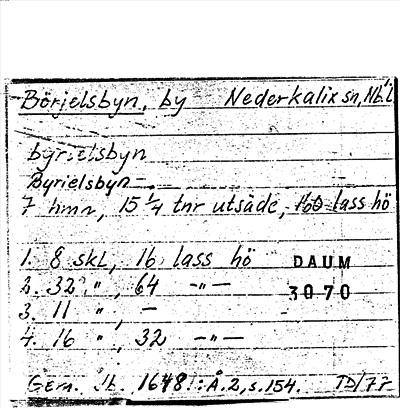 Börjelsbyn, by Nederkalix sn, Nb.l.
byrielsbyn
Byrielsbyn
7 hmn, 15 1/4 tnr utsäde, 160 lass hö
1. 8 skl, 16 lass hö DAUM
2. 32 " , 64 -"- 3070
3. 11 " , -
4. 16 " , 32 -"-
Gem. Jb. 1648!: Å.2, s.154. TD/77